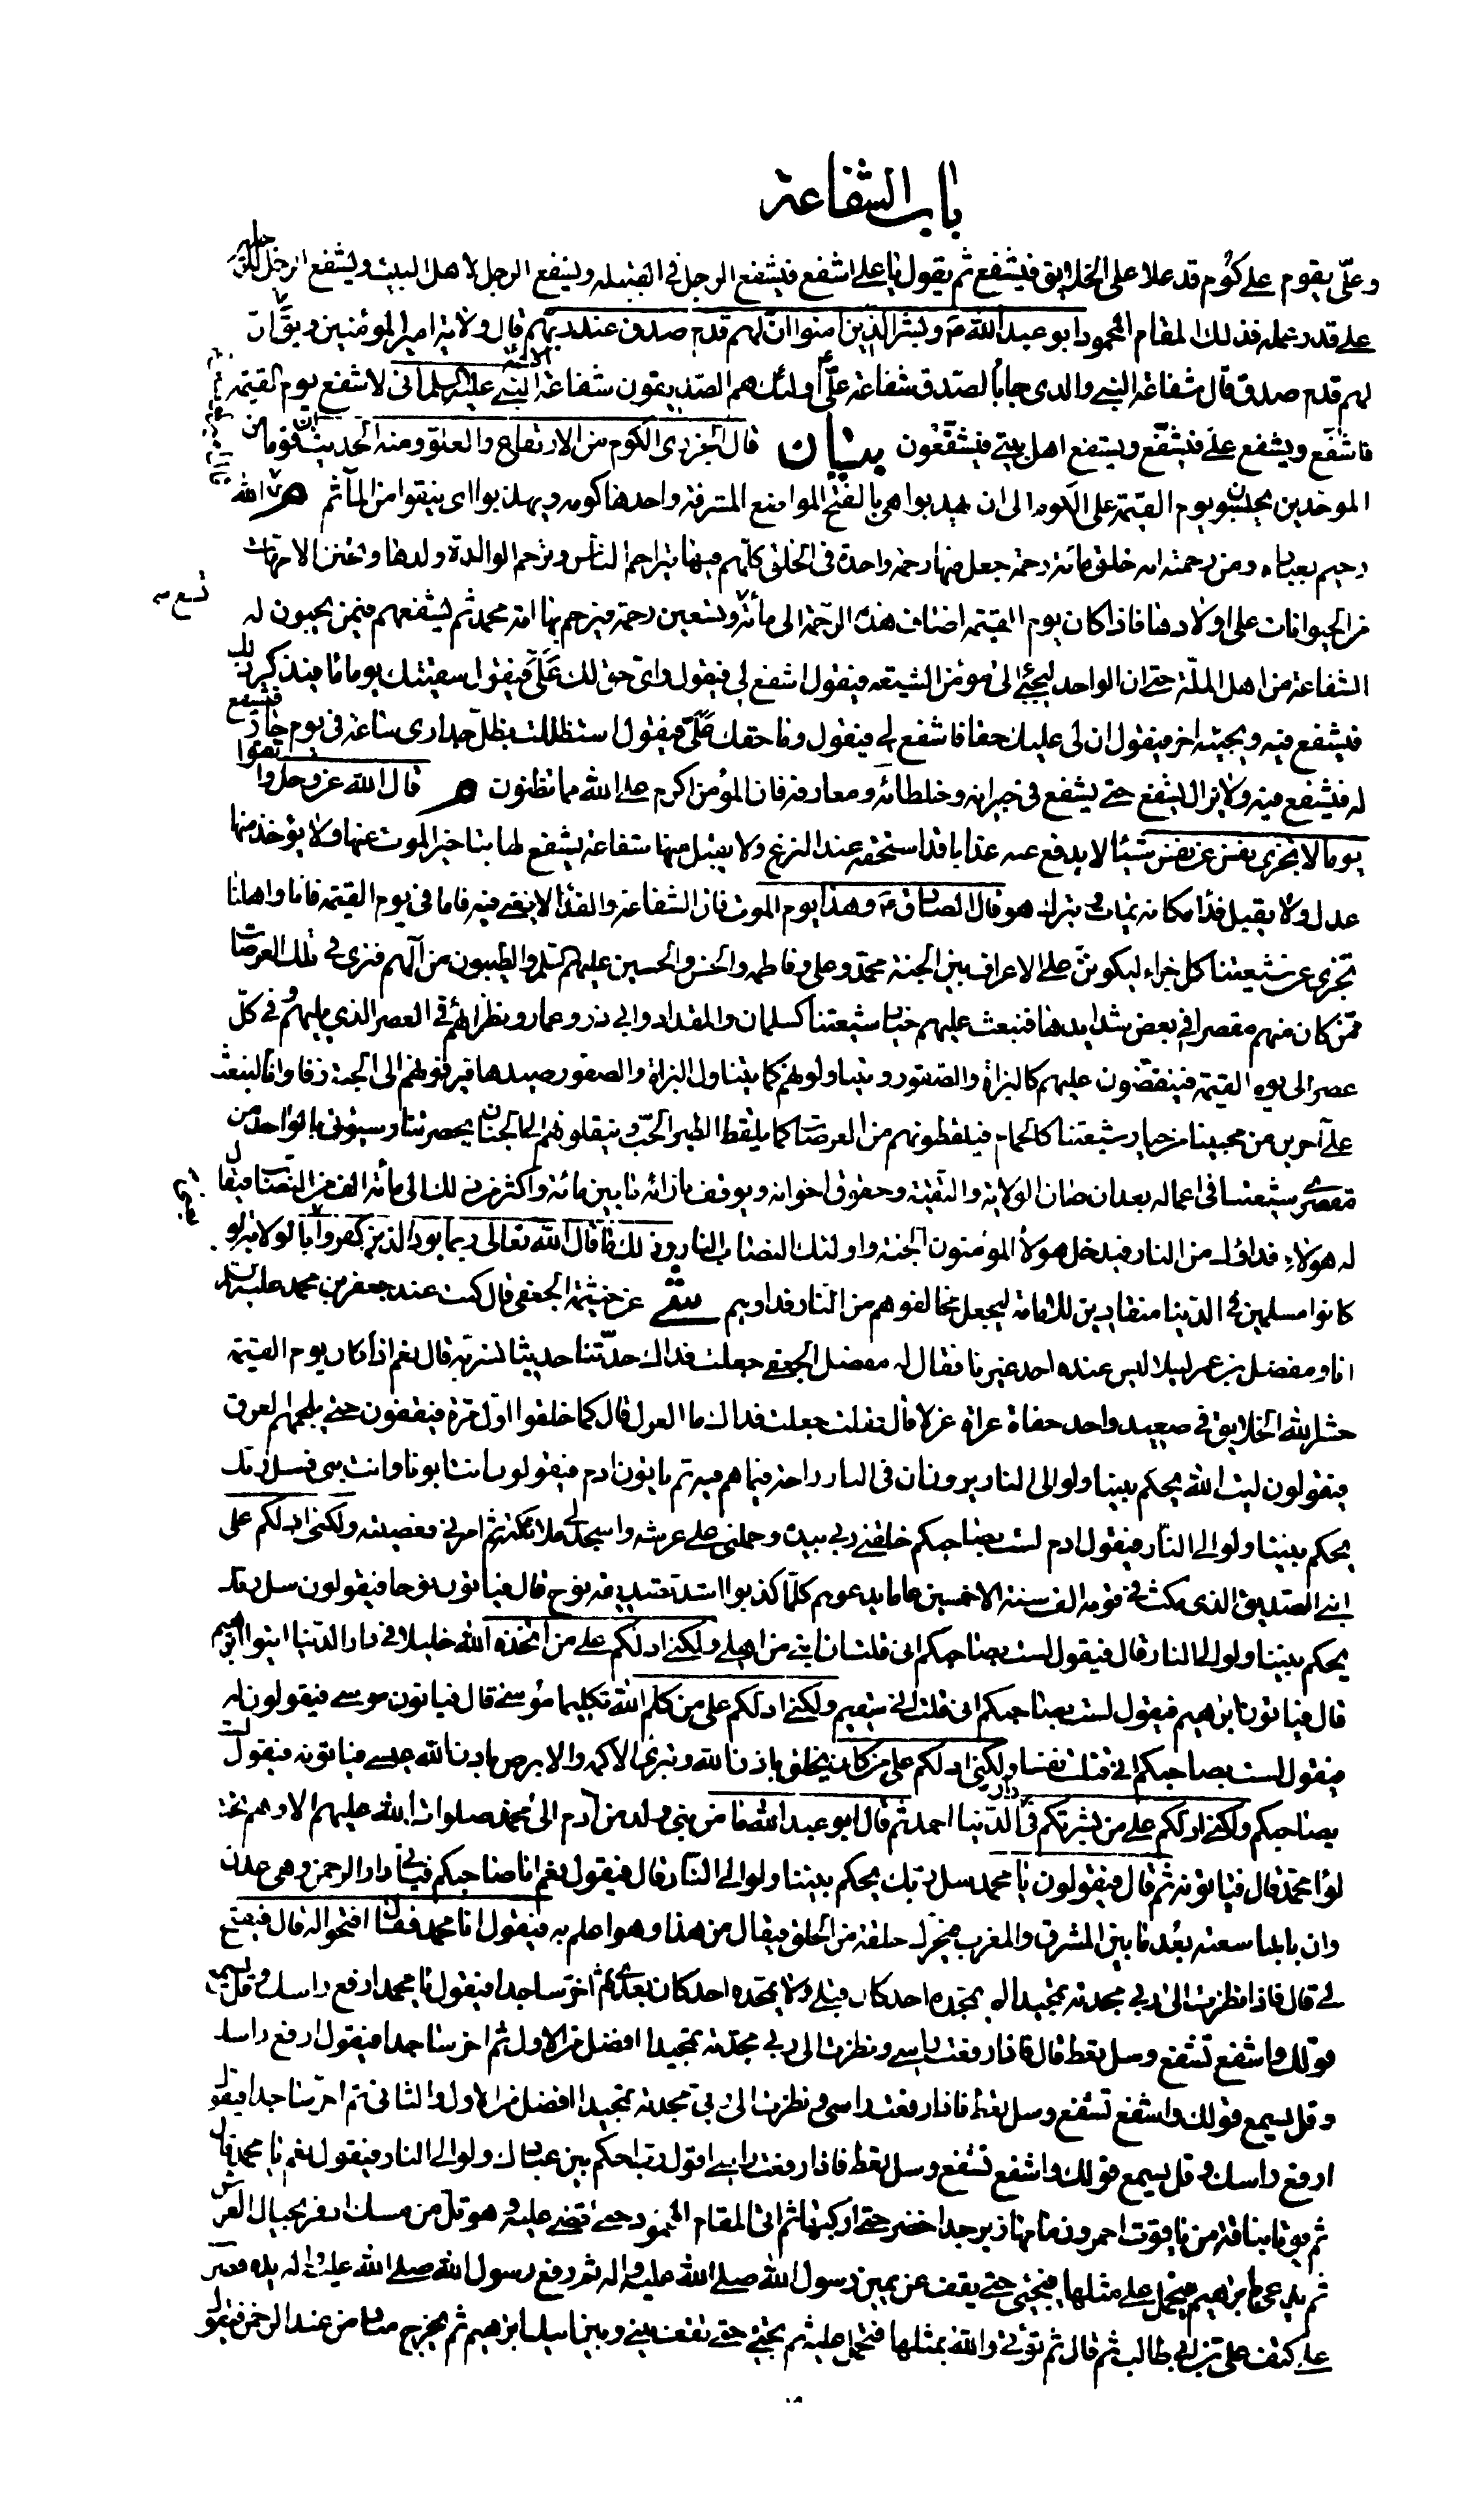 باب الشفاعة
وعلي يقوم على كوم قد علا على الخلايق فيشفع ثم يقول يا علي اشفع فيشفع الرجل في القبيلة ويشفع الرجل لاهل البيت ويشفع الرجل للرجلين
على قدر عمله فذلك المقام المحمود ابو عبد الله ع وبشر الذين امنوا ان لهم قدم صدق عند ربهم قال ولاية امير المؤمنين ويقال ان
لهم قدم صدق قال شفاعة النبي والذي جاء بالصدق شفاعة علي اولئك هم الصديقون شفاعة الائمة النبي عليه السلم اني لاشفع يوم القيمة
فاشفع ويشفع علي فيشفع ويشفع اهل بيتي فيشفعون بيان قال الجزري الكوم من الارتفاع والعلو ومنه الحديث ان قوما من
الموحدين يحبسون يوم القيمة على الكوم الى ان يهذبوا هي بالفتح المواضع المشرفة واحدها كومة ويهذبوا اي ينقوا من المآثم م الله
رحيم بعباده ومن رحمته انه خلق مائة رحمة جعل منها رحمة واحدة في الخلق كلهم فبها يتراحم الناس وترحم الوالدة ولدها وتحنن الامهات
من الحيوانات على اولادها فاذا كان يوم القيمة اضاف هذه الرحمة الى مائة وتسعين رحمة فيرحم بها امة محمد ثم يشفعهم فيمن يحبون له
الشفاعة من اهل الملة حتى ان الواحد ليجئ الى مؤمن الشيعة فيقول اشفع لي فيقول واي حق لك علي فيقول سقيتك يوما ماء فيذكر ذلك
فيشفع فيه ويجيئه اخر فيقول ان لي عليك حقا فاشفع لي فيقول وما حقك علي فيقول استظللت بظل جداري ساعة في يوم حار فيشفع
له فيشفع فيه ولا يزال يشفع حتى يشفع في جيرانه وخلطائه ومعارفه فان المؤمن اكرم على الله مما تظنون م قال الله عز وجل واتقوا
يوما لا تجزي نفس عن نفس شيئا لا يدفع عنه عذابا قد استحقه عند النزع ولا يقبل منها شفاعة يشفع لها بتاخير الموت عنها ولا يؤخذ منها
عدل ولا يقبل فداء مكانه يمات ويترك هو قال الصادق ع وهذا يوم الموت فان الشفاعة والفداء لا يغني فيه فاما في يوم القيمة فانا واهلنا
نجزي عن شيعتنا كل جزاء ليكونن على الاعراف بين الجنة محمد وعلي وفاطمة والحسن والحسين عليهم السلم والطيبون من آلهم فنرى في تلك العرصات
فمن كان منهم مقصرا في بعض شدايدها فنبعث عليهم خيار شيعتنا كسلمان والمقداد وابي ذر وعمار ونظرائهم في العصر الذي يليهم وفي كل
عصر الى يوم القيمة فينقضون عليهم كالبزاة والصقور ويتناولونهم كما يتناول البزاة والصقور صيدها فيزفونهم الى الجنة زفا وانا لنبعث
على آخرين من محبينا من خيار شيعتنا كالحمام فيلقطونهم من العرصات كما يلقط الطير الحب وينقلونهم الى الجنان بحضرتنا وسيؤتى بالواحد من
مقصري شيعتنا في اعماله بعد ان صان الولاية والتقية وحقوق اخوانه ويوقف بازائه ما بين مائة واكثر من ذلك الى مائة الف من النصاب فيقال
له هؤلاء فداؤك من النار فيدخل هؤلاء المؤمنون الجنة واولئك النصاب النار وذلك ما قال الله تعالى ربما يود الذين كفروا بالولاية لو
كانوا مسلمين في الدنيا منقادين للامامة ليجعل مخالفوهم من النار فداؤهم شي عن خيثمة الجعفي قال كنت عند جعفر بن محمد عليه السلم
انا ومفضل بن عمر ليلا ليس عنده احد غيرنا فقال له مفضل الجعفي جعلت فداك حدثنا حديثا نسر به قال نعم اذا كان يوم القيمة
حشر الله الخلايق في صعيد واحد حفاة عراة غرلا قال فقلت جعلت فداك ما الغرل قال كما خلقوا اول مرة فيقفون حتى يلجمهم العرق
فيقولون ليت الله يحكم بيننا ولو الى النار يرون ان في النار راحة فيما هم فيه ثم ياتون ادم فيقولون انت ابونا وانت نبي فسل ربك
يحكم بيننا ولو الى النار فيقول ادم لست بصاحبكم خلقني ربي بيده وحملني على عرشه واسجد لي ملائكته ثم امرني فعصيته ولكني ادلكم على
ابني الصديق الذي مكث في قومه الف سنة الا خمسين عاما يدعوهم كلما كذبوا اشتد تصديقه نوح قال فياتون نوحا فيقولون سل ربك
يحكم بيننا ولو الى النار قال فيقول لست بصاحبكم اني قلت ان ابني من اهلي ولكني ادلكم على من اتخذه الله خليلا في دار الدنيا ائتوا ابرهيم
قال فياتون ابرهيم فيقول لست بصاحبكم اني قلت اني سقيم ولكني ادلكم على من كلم الله تكليما موسى قال فياتون موسى فيقولون له
فيقول لست بصاحبكم اني قتلت نفسا ولكني ادلكم على من كان يخلق باذن الله ويبرئ الاكمه والابرص باذن الله عيسى فياتونه فيقول لست
بصاحبكم ولكني ادلكم على من بشرتكم في دار الدنيا احمد ثم قال ابو عبد الله ما من نبي ولد من ادم الى محمد صلوات الله عليهم الا وهم تحت
لواء محمد قال فياتونه ثم قال فيقولون يا محمد سل ربك يحكم بيننا ولو الى النار قال فيقول نعم انا صاحبكم فياتي دار الرحمن وهي عدن
وان بابها سعته بعد ما بين المشرق والمغرب فيحرك حلقة من الحلق فيقال من هذا وهو اعلم به فيقول انا محمد فيقال افتحوا له قال فيفتح
لي قال فاذا نظرت الى ربي مجدته تمجيدا لم يمجده احد كان قبلي ولا يمجده احد كان بعدي ثم اخر ساجدا فيقول يا محمد ارفع راسك وقل يسمع
قولك واشفع تشفع وسل تعط قال فاذا رفعت راسي ونظرت الى ربي مجدته تمجيدا افضل من الاول ثم اخر ساجدا فيقول ارفع راسك
وقل يسمع قولك واشفع تشفع وسل تعط فاذا رفعت راسي ونظرت الى ربي مجدته تمجيدا افضل من الاول والثاني ثم اخر ساجدا فيقول
ارفع راسك وقل يسمع قولك واشفع تشفع وسل تعط فاذا رفعت راسي اقول رب احكم بين عبادك ولو الى النار فيقول نعم يا محمد قال
ثم يؤتى بناقة من ياقوت احمر وزمامها زبرجد اخضر حتى اركبها ثم اتي المقام المحمود حتى اقضي عليه وهو تل من مسك اذفر بحيال العرش
ثم يدعى ابرهيم فيحمل على مثلها فيجئ حتى يقف عن يمين رسول الله صلى الله عليه واله ثم رفع رسول الله صلى الله عليه واله يده فضرب
على كتف علي بن ابي طالب ثم قال ثم تؤتى والله بمثلها فتحمل عليه ثم تجئ حتى تقف بيني وبين ابيك ابرهيم ثم يخرج مناد من عند الرحمن فيقول